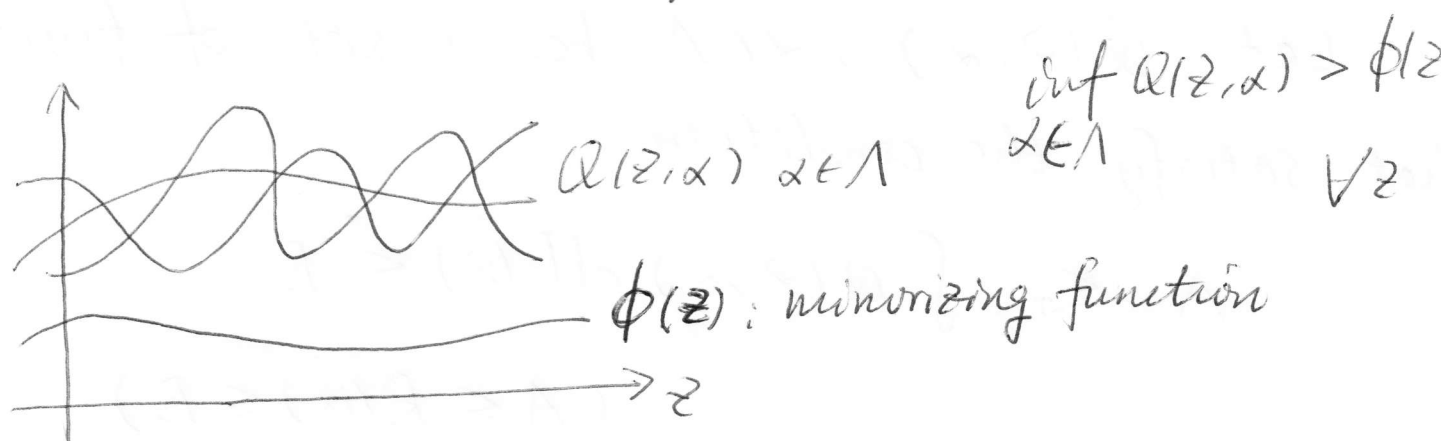 inf Q(z,α) > ϕ(z
α∈Λ
∀z
Q(z,α) α∈Λ
ϕ(z): minorizing function
z